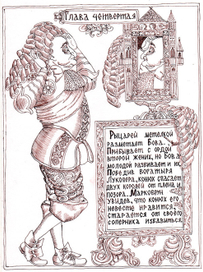 Глава четвертая
Рыцарей метелкой
разметает Бова.
Прибывает с ордой
второй жених, но Бова
молодой разбивает и их.
Победив богатыря
Лукопера, конюх спасает
двух королей от плена и
позора. Маркобрун
увидев, что конюх его
невесте нравится,
старается от своего
соперника избавиться